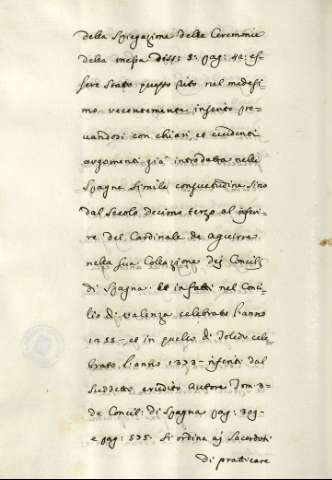 della Spiegazione delle Ceremonie
della messa diss: 8: pag: 42: es-
sere stato questo rito nel medesi-
mo recentemente inserito pro-
vandosi con chiari, et evidenti
argomenti già introdotta nelle
Spagne simile consuetudine sino
dal secolo decimo terzo al riferi-
re del Cardinale de Aguirre
nella sua Collazione dei Concilij
di Spagna: et infatti nel Conci-
lio di Valenza celebrato l'anno
1255 - et in quello di Toledo cele-
brato l'anno 1323 - riferiti dal
suddetto erudito Autore Tom: 3:
de Concil: di Spagna pag: 509:
e pag: 575: si ordina ai Sacerdoti
di pratticare